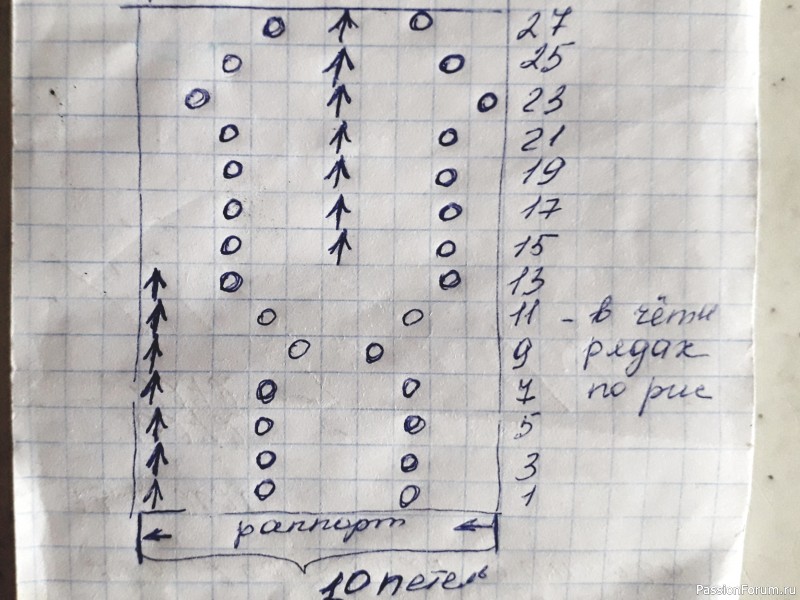 27
25
23
21
19
17
15
13
11 - в чётн
9 рядах
7 по рис
5
3
1
раппорт
10 петель
PassionForum.ru